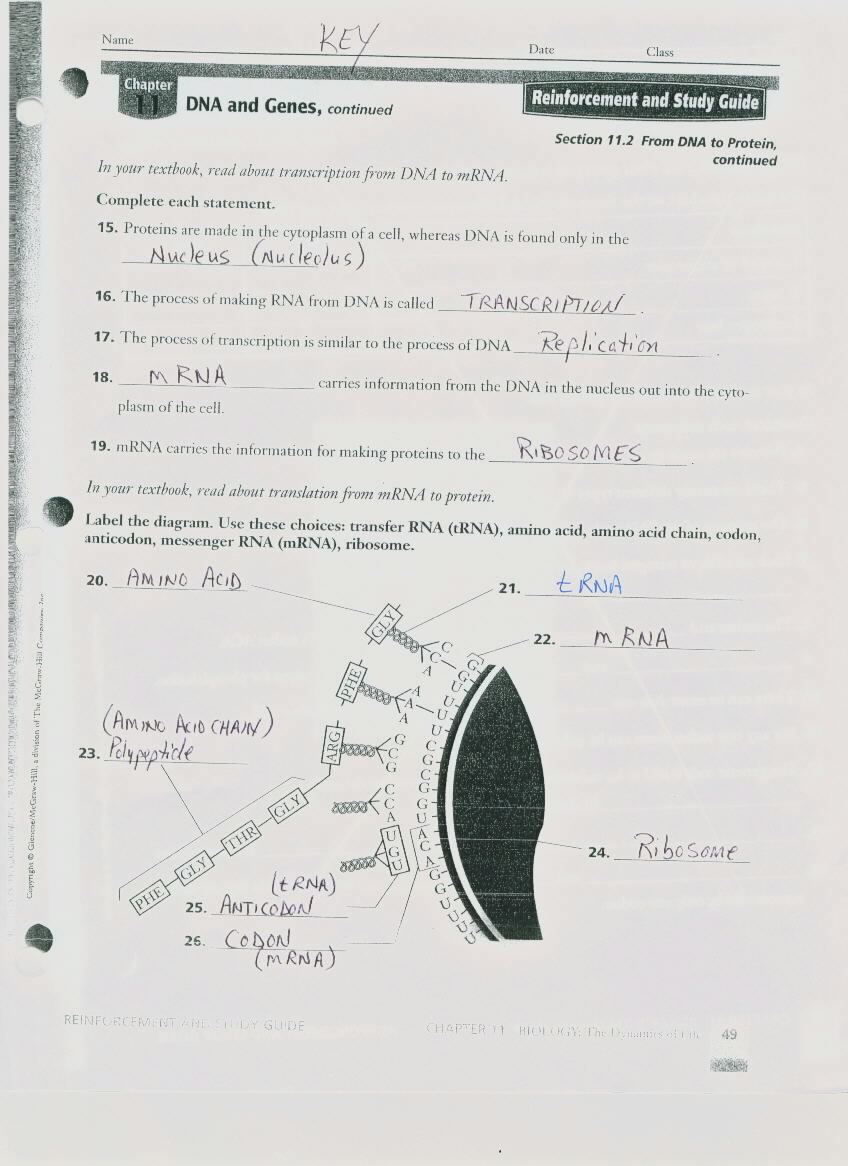 Name KEY Date Class
Chapter 11 DNA and Genes, continued Reinforcement and Study Guide
Section 11.2 From DNA to Protein,
continued
In your textbook, read about transcription from DNA to mRNA.
Complete each statement.
15. Proteins are made in the cytoplasm of a cell, whereas DNA is found only in the
Nucleus (Nucleolus)
16. The process of making RNA from DNA is called TRANSCRIPTION.
17. The process of transcription is similar to the process of DNA Replication.
18. mRNA carries information from the DNA in the nucleus out into the cyto-
plasm of the cell.
19. mRNA carries the information for making proteins to the RIBOSOMES.
In your textbook, read about translation from mRNA to protein.
Label the diagram. Use these choices: transfer RNA (tRNA), amino acid, amino acid chain, codon,
anticodon, messenger RNA (mRNA), ribosome.
20. AMINO ACID
21. tRNA
22. mRNA
(AMINO ACID CHAIN)
23. Polypeptide
24. Ribosome
(tRNA)
25. ANTICODON
26. CODON
(mRNA)
GLY
PHE
ARG
GLY
THR
GLY
PHE
C C A
A A A
G C G
C C A
U G U
G G U U U U C G C G G U A C A G G U U U U
Copyright © Glencoe/McGraw-Hill, a division of The McGraw-Hill Companies, Inc.
REINFORCEMENT AND STUDY GUIDE CHAPTER 11 BIOLOGY: The Dynamics of Life 49